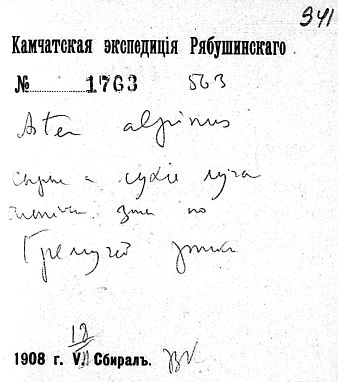 341
Камчатская экспедиція Рябушинскаго
№ 1763 563
Aster alpinus
сырые и сухіе луга
по
Гремучей
12
1908 г. VII Сбиралъ. ВК